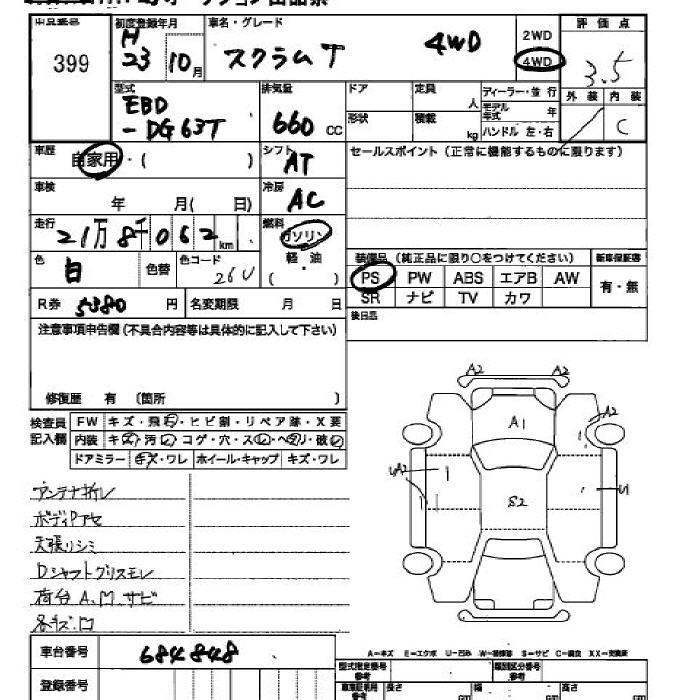 出品番号 399
初度登録年月 H 23 10月
車名・グレード スクラムT 4WD
2WD
4WD
評価点 3.5
外装 内装 C
型式 EBD -DG63T
排気量 660 CC
ドア 定員 人
形状 積載 kg
ディーラー・並行
モデル年式 年
ハンドル 左・右
車歴 自家用・( )
シフト AT
セールスポイント (正常に機能するものに限ります)
車検 年 月( 日)
冷房 AC
走行 21万8千062 km
燃料 ガソリン
軽・油
( )
色 白 色替 色コード 26U
装備品 (純正品に限り○をつけてください) 新車保証書
PS PW ABS エアB AW
SR ナビ TV カワ
有・無
R券 5380 円 名変期限 月 日
後日品
注意事項申告欄(不具合内容等は具体的に記入して下さい)
修復歴 有 〔箇所 〕
検査員記入欄
FW キズ・飛石・ヒビ割・リペア跡・X要
内装 キズ・汚レ・コゲ・穴・スレ・ヘタリ・破レ
ドアミラー キズ・ワレ ホイール・キャップ キズ・ワレ
アンテナ折レ
ボディPアセ
天張リシミ
Dシャフトグリスモレ
荷台A.M.サビ
各キズ.凹
A2 A2
A1
A2
A2
S2
U1
A-キズ E-エクボ U-凹み W-補修跡 S-サビ C-腐食 XX-交換済
車台番号 684848
登録番号
型式指定番号 参考
類別区分番号 参考
車庫証明用 参考 長さ cm 幅 cm 高さ cm